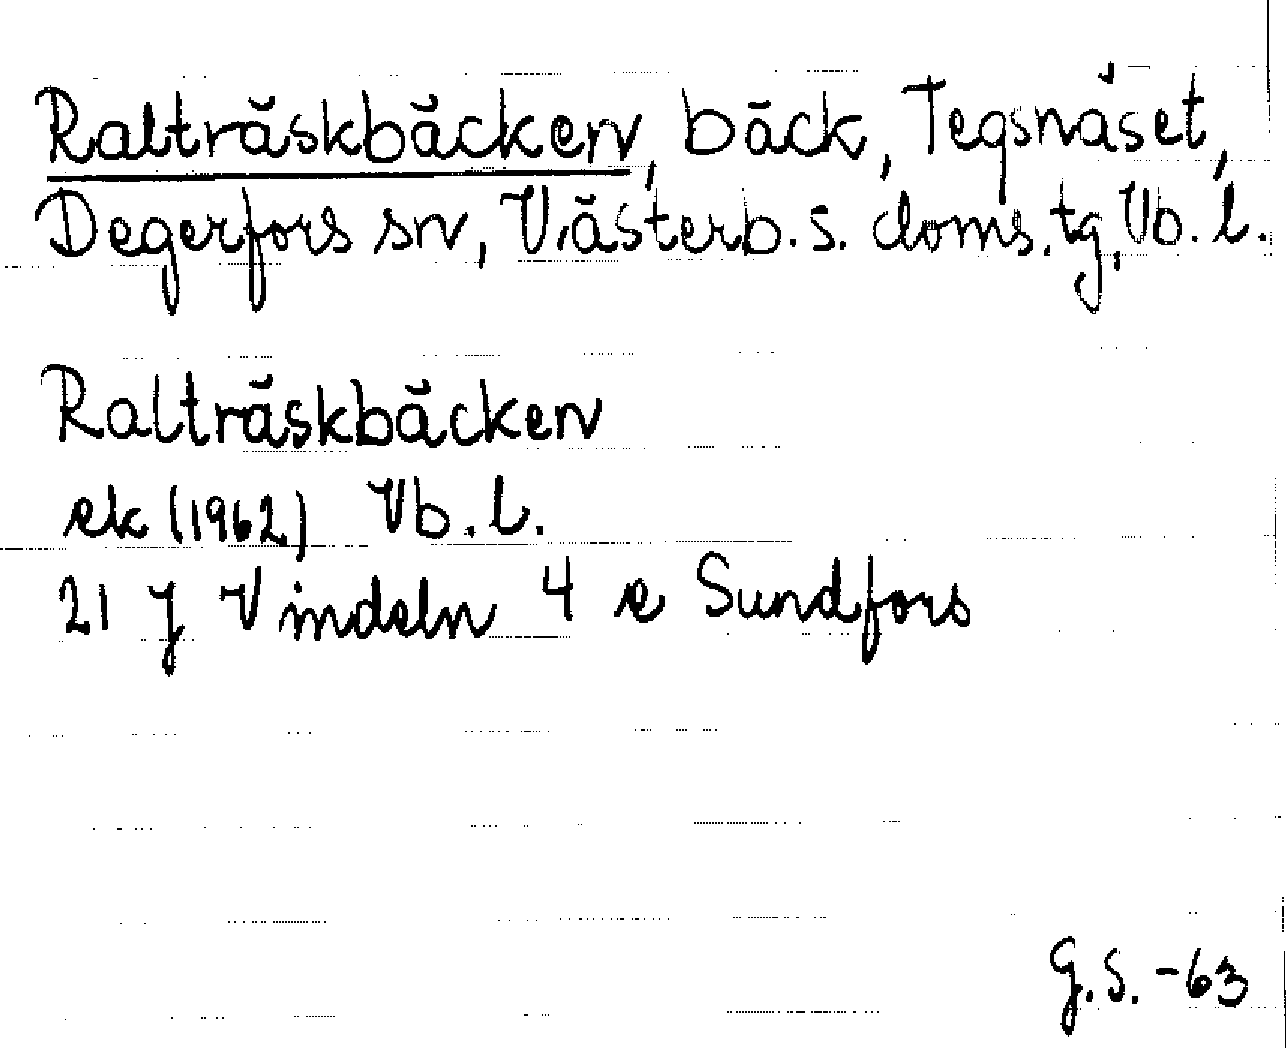 Ralträskbäcken, bäck, Tegsnäset,
Degerfors sn, Västerb. s. doms. tg, Vb. l.
Ralträskbäcken
ek (1962) Vb. l.
21 J Vindeln 4 e Sundfors
G.S. -63